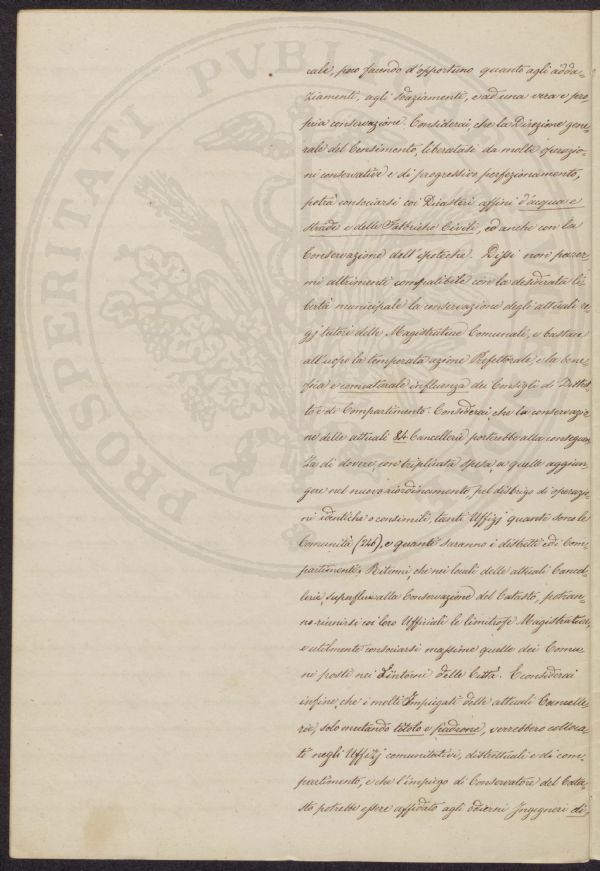 rale, poco facendo d'opportuno quanto agli adda-
ziamenti, agli sdaziamenti, e ad una vera e pro
pria conservazione. Considerai, che la Direzione gene
rale del Censimento, liberatasi da molte operazio-
ni conservative e di progressivo perfezionamento,
potrà consociarsi coi Dicasteri affini d'acqua e
strade e delle Fabbriche Civili, ed anche con la
Conservazione dell'ipoteche. Dissi non parer-
mi altrimenti compatibile con la desiderata li
bertà municipale la conservazione degli attuali re
gj tutori delle Magistrature Comunali, e bastare
all'uopo la temperata azione Prefettorale, e la bene
fica e connaturale influenza dei Consigli di Distret
to e di Compartimento. Considerai, che la conservazio
ne delle attuali 84 Cancellerie porterebbe alla conseguen
za di dovere, con triplicata spesa, a quelle aggiun
gere nel nuovo riordinamento, pel disbrigo di operazio
ni identiche o consimili, tanti Uffizj quante sono le
Comunità (246), e quanti saranno i distretti ed i Com-
partimenti. Ritenni, che nei locali delle attuali Cancel-
lerie, superflue alla Conservazione del Catasto, potran-
no riunirsi coi loro Ufficiali le limitrofe Magistrature,
e utilmente consociarsi massime quelle dei Comu
ni posti nei dintorni delle Città. E considerai
infine, che i molti Impiegati delle attuali Cancelle
rie, solo mutando titolo e padrone, verrebbero colloca-
ti negli Uffizj comunitativi, distrettuali e di com-
partimento, e che l'impiego di Conservatore del Cata-
sto potrebbe essere affidato agli odierni Ingegneri di-
PROSPERITATI PVBLI